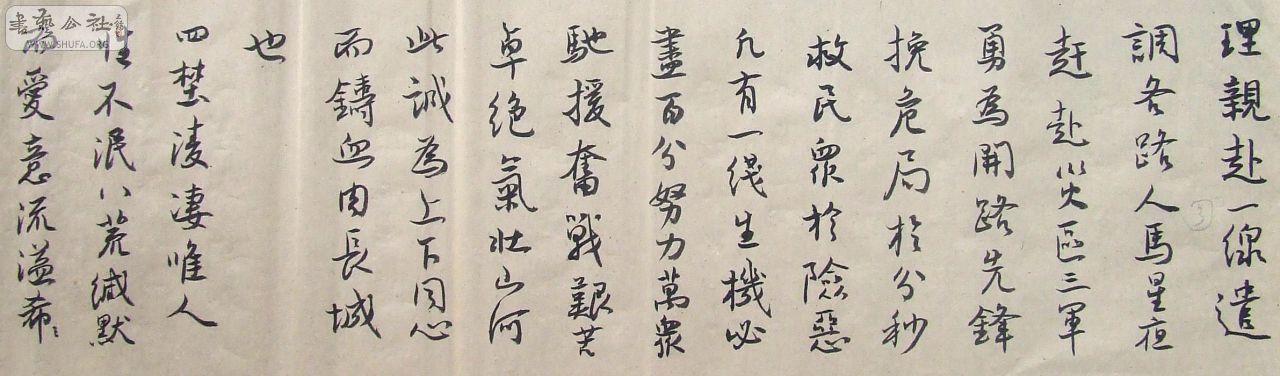 理親赴一線遣
調各路人馬星夜
赶赴災區三軍
勇為開路先鋒
挽危局於分秒
救民眾於險惡
凡有一綫生機必
盡百分努力萬眾
馳援奮戰艱苦
卓绝氣壯山河
此誠為上下同心
而鑄血肉長城
也
四埜凄凄唯人
性不泯八荒缄默
愛意流溢希
③
書藝公社
WWW.SHUFA.ORG